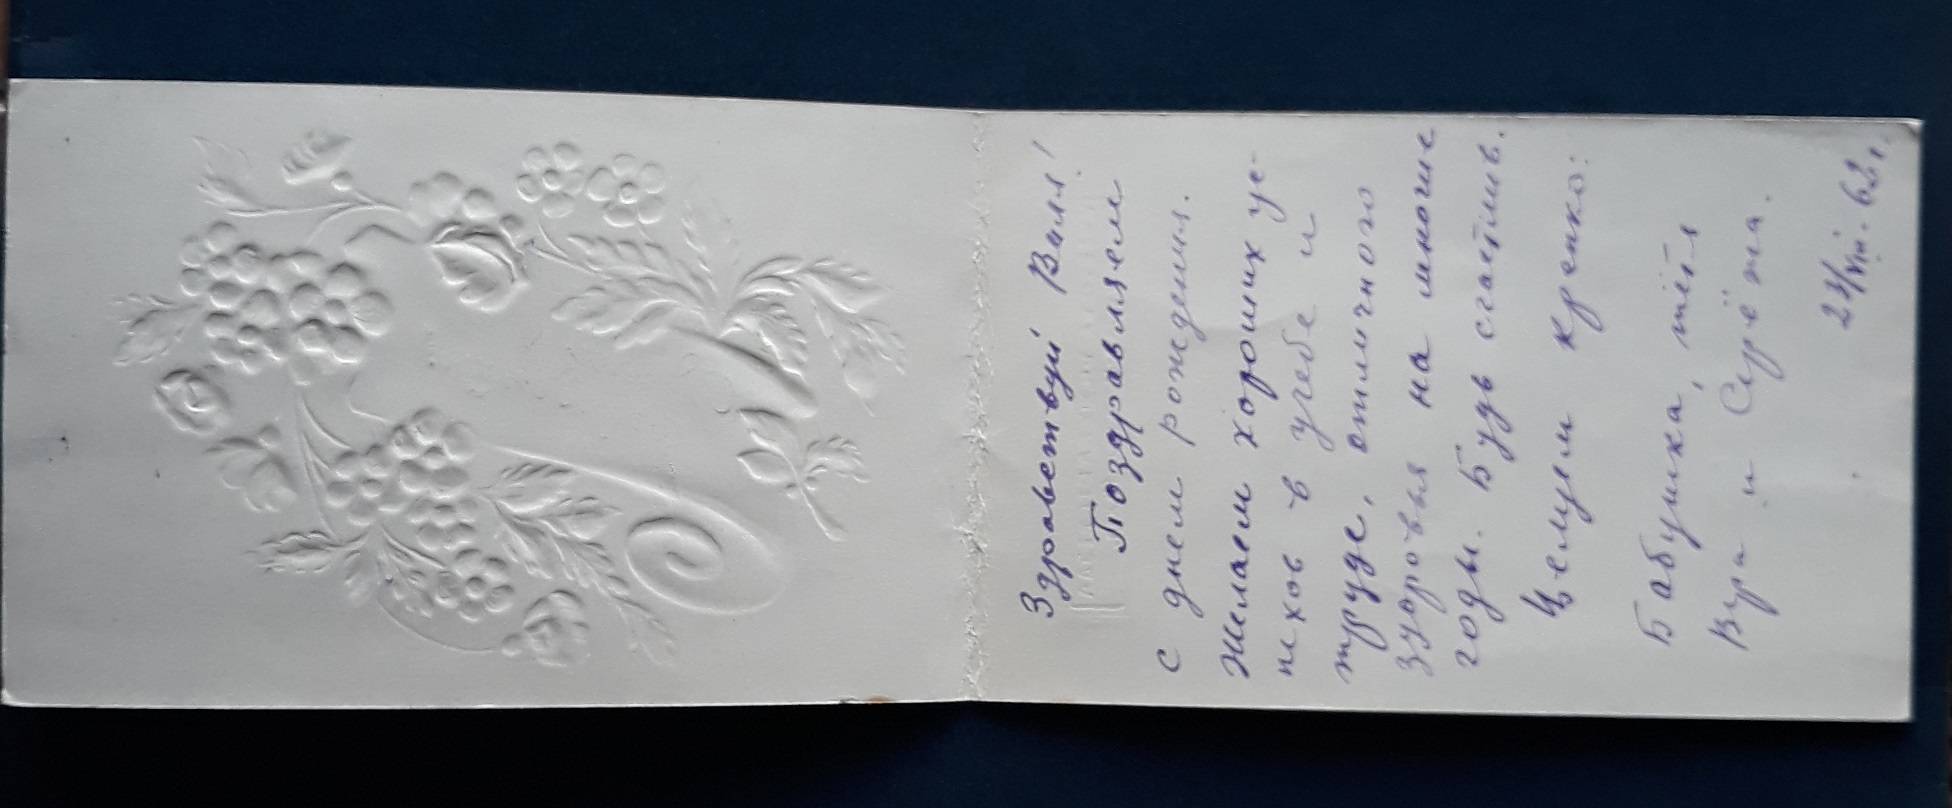 Здравствуй Валя!
Поздравляем
с днем рождения.
Желаем хороших ус-
пехов в учебе и
труде, отличного
здоровья на многие
годы. Будь счастлив.
Целуем крепко:
Бабушка, тётя
Вера и Серёжа.
VIII. 62 г.